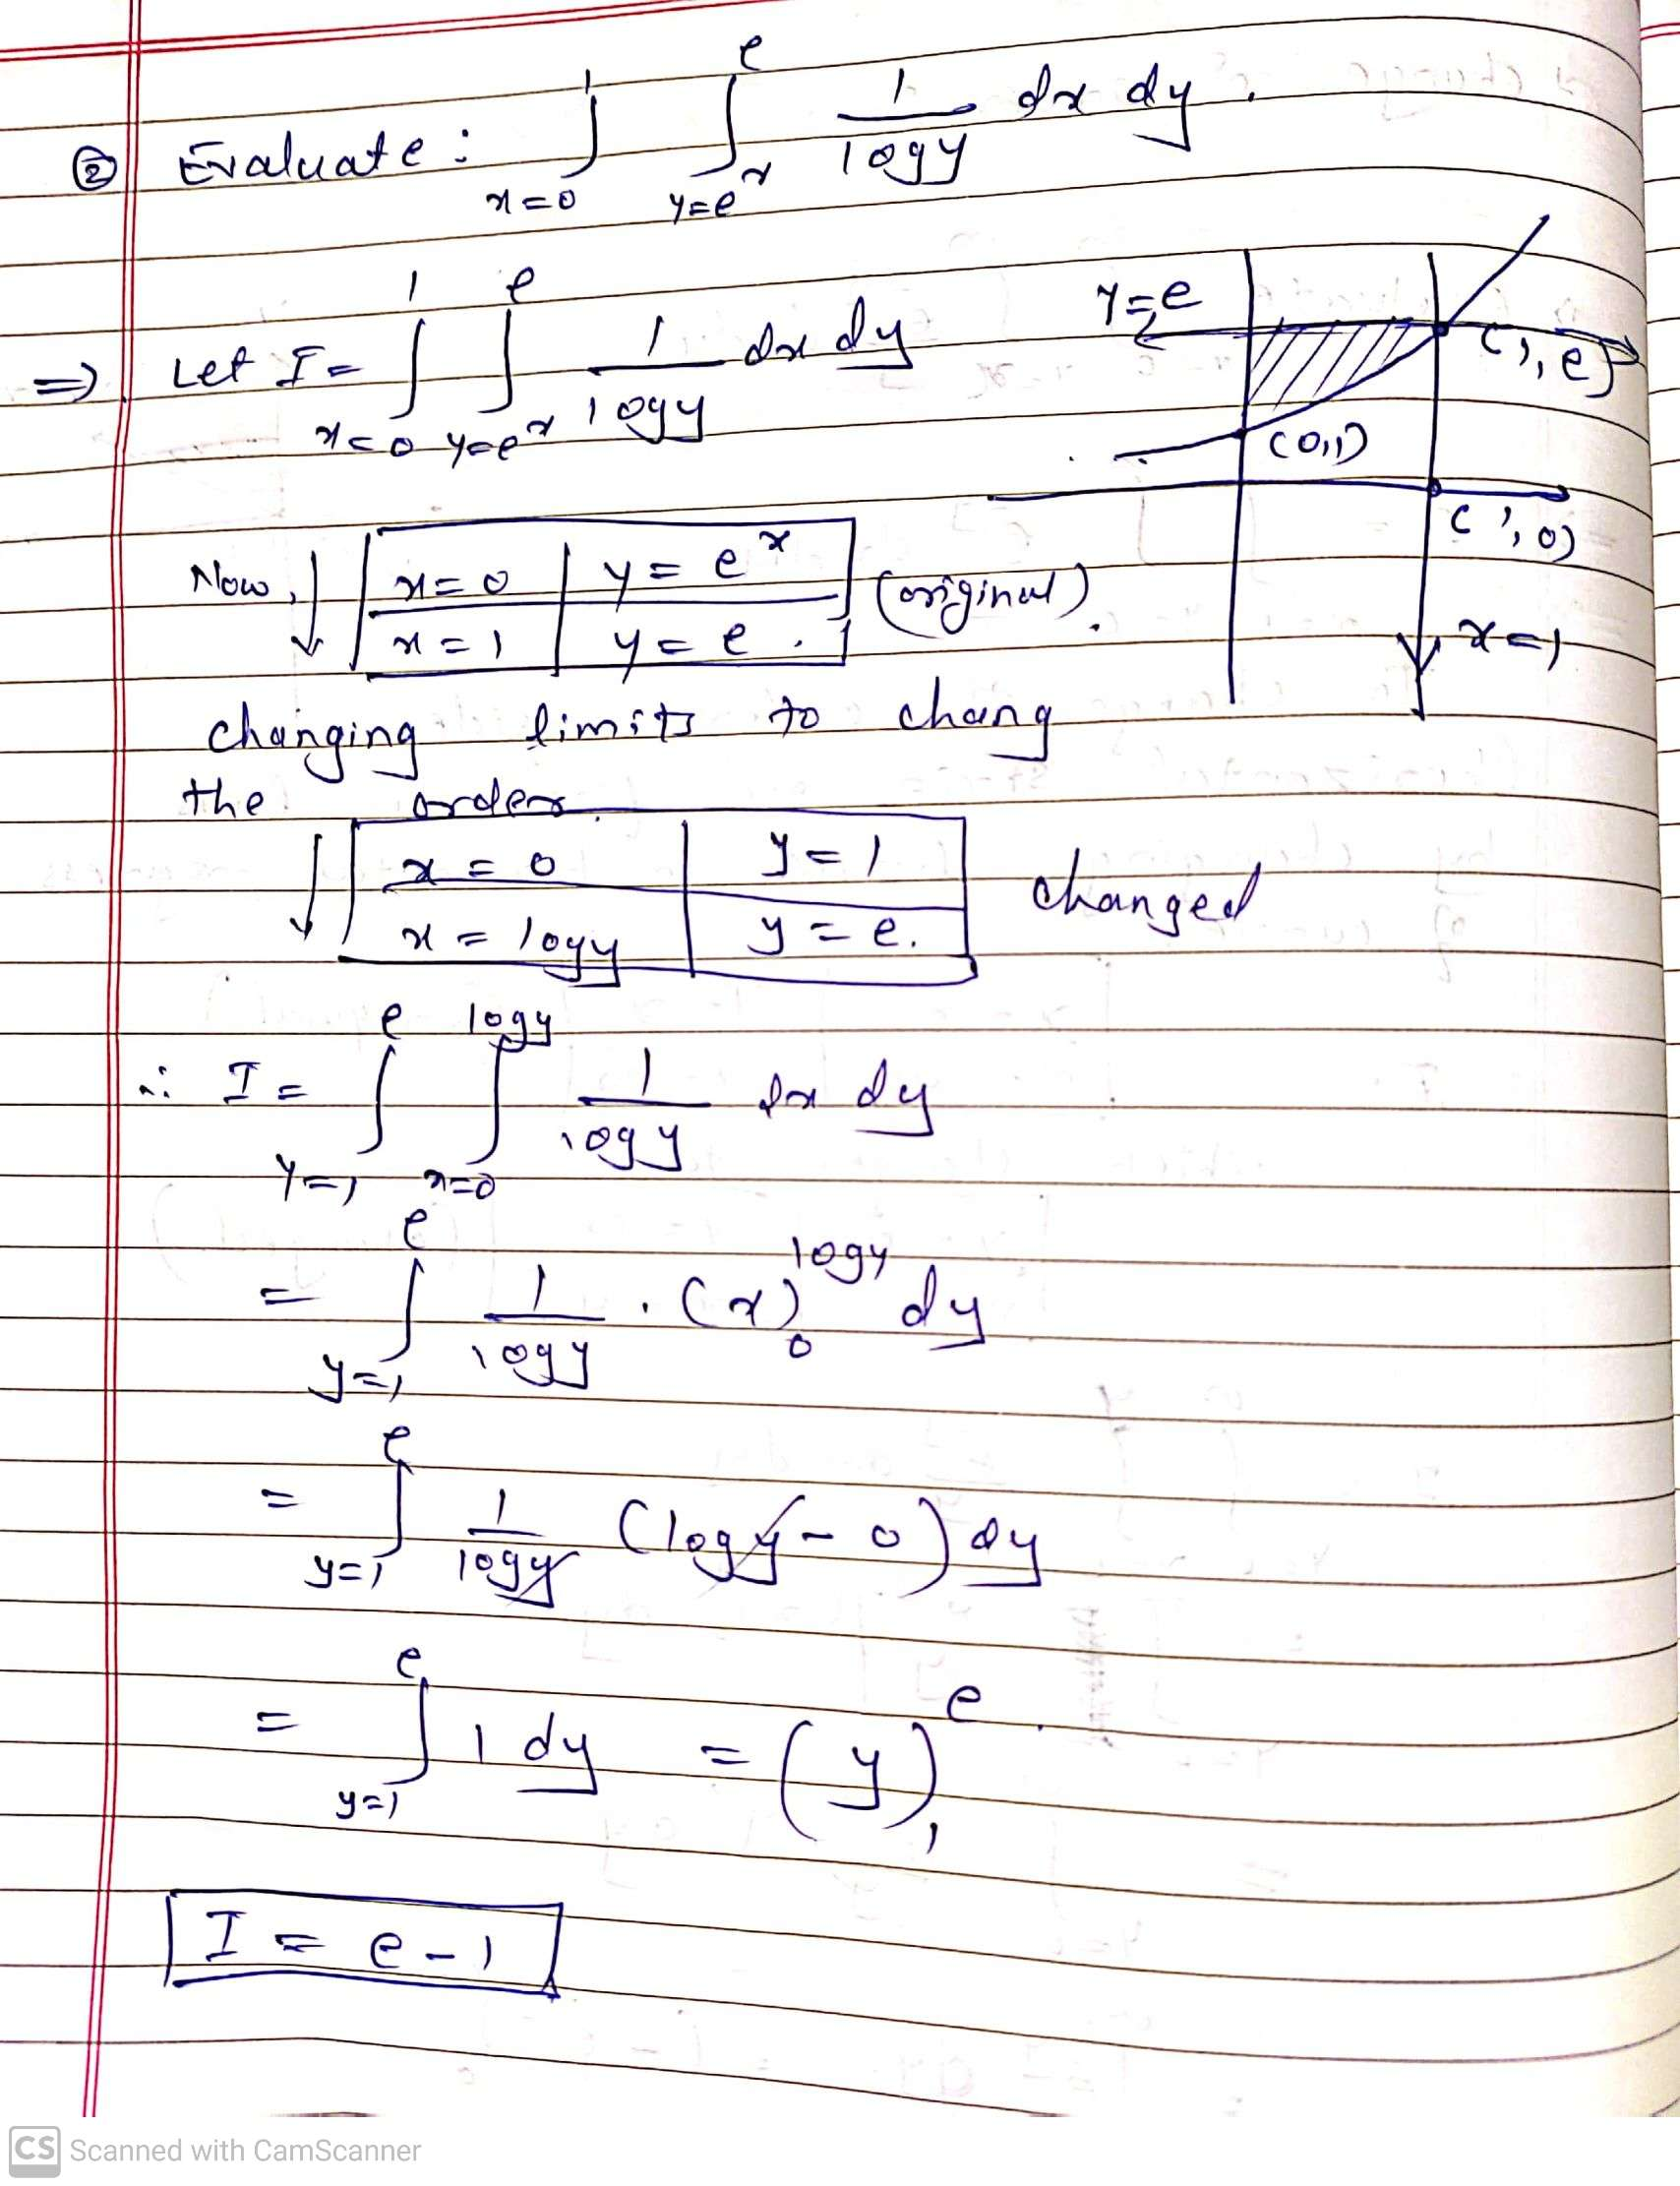 ② Evaluate : ∫_{x=0}^{1} ∫_{y=e^x}^{e} 1/logy dx dy .
⇒ Let I = ∫_{x=0}^{1} ∫_{y=e^x}^{e} 1/logy dx dy
y=e
(1, e)
(0,1)
(1, 0)
x=1
Now, ↓ x=0 | y = e^x (original).
x=1 | y = e .
changing limits to chang
the order.
↓ x = 0 | y = 1 changed
x = logy | y = e.
∴ I = ∫_{y=1}^{e} ∫_{x=0}^{logy} 1/logy dx dy
= ∫_{y=1}^{e} 1/logy . (x)_0^{logy} dy
= ∫_{y=1}^{e} 1/logy (logy - 0) dy
= ∫_{y=1}^{e} 1 dy = (y)_1^e .
I = e - 1
CS Scanned with CamScanner